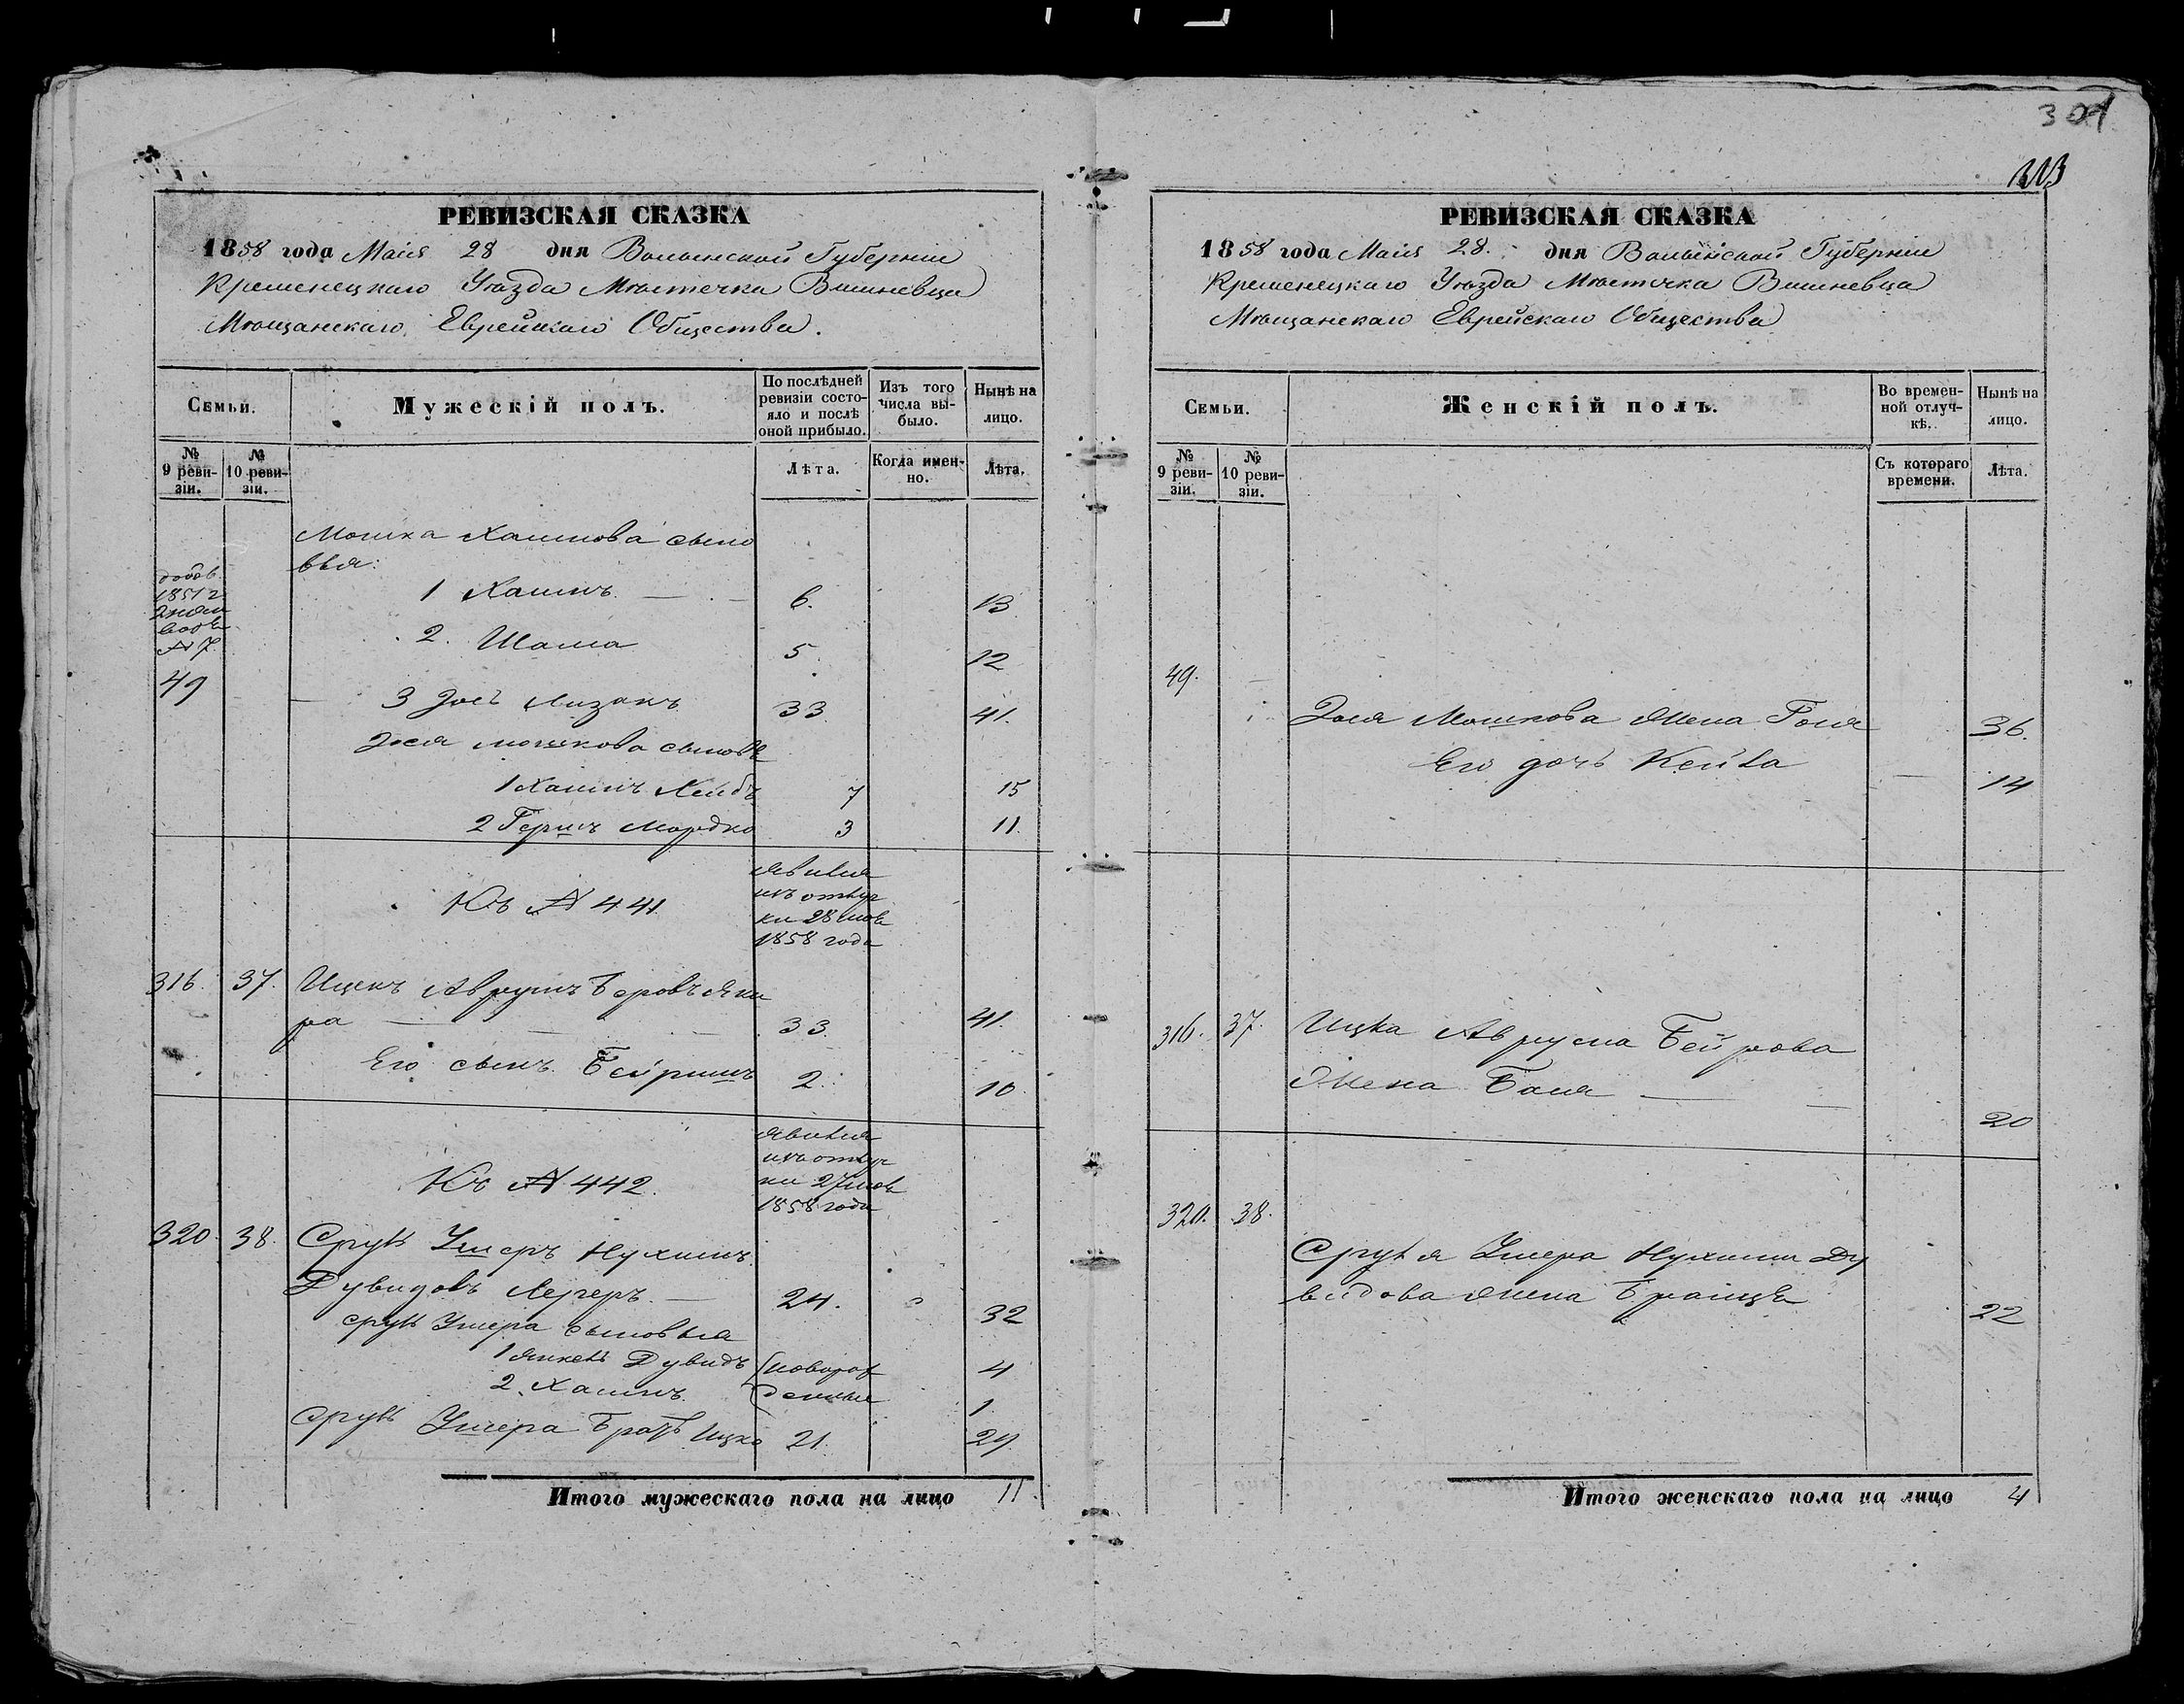 301
РЕВИЗСКАЯ СКАЗКА
1858 года Маія 28 дня Волынской Губерніи
Кременецкаго Уѣзда Мѣстечка Вишневца
Мѣщанскаго Еврейскаго Общества.
Семьи.
Мужескій полъ.
По послѣдней ревизіи состояло и послѣ оной прибыло.
Изъ того числа выбыло.
Нынѣ на лицо.
№ 9 ревизіи.
№ 10 ревизіи.
Лѣта.
Когда именно.
Лѣта.
Мошка Хаимова сыно
вья:
1851
№ 7
1 Хаимъ 6. 13
2. Шама 5 12
49 3 Йось Айзикъ 33 41.
Йося Мошкова сыновья
1 Хаимъ Лейбъ 7 15
2 Гершъ Мордко 3 11.
Къ № 441
явился
изъ отлуч
ки 28 мая
1858 года
316. 37. Ицекъ Аврумъ Беровъ Яки
ра 33. 41.
Его сынъ Бейришъ 2. 10
Къ № 442.
явился
изъ отлуч
ки 27 мая
1858 года
320. 38. Сруль Ушеръ Нухимъ
Дувидовъ 24. 32
Сруль Ушера сыновья
1 Янкель Дувидъ новорож 4
2. Хаимъ денные 1
Сруль Ушера братъ Ицко 21. 29
Итого мужескаго пола на лицо 11.
РЕВИЗСКАЯ СКАЗКА
1858 года Маія 28. дня Волынской Губерніи
Кременецкаго Уѣзда Мѣстечка Вишневца
Мѣщанскаго Еврейскаго Общества
Семьи.
Женскій полъ.
Во временной отлучкѣ.
Нынѣ на лицо.
№ 9 ревизіи.
№ 10 ревизіи.
Съ котораго времени.
Лѣта.
49.
Йося Мошкова жена Гоня 36.
Его дочь Кейла 14
316. 37. Ицка Аврума Бейрова
жена Бася 20
320. 38.
Сруля Ушера Нухима Ду
видова жена Браище 22
Итого женскаго пола на лицо 4